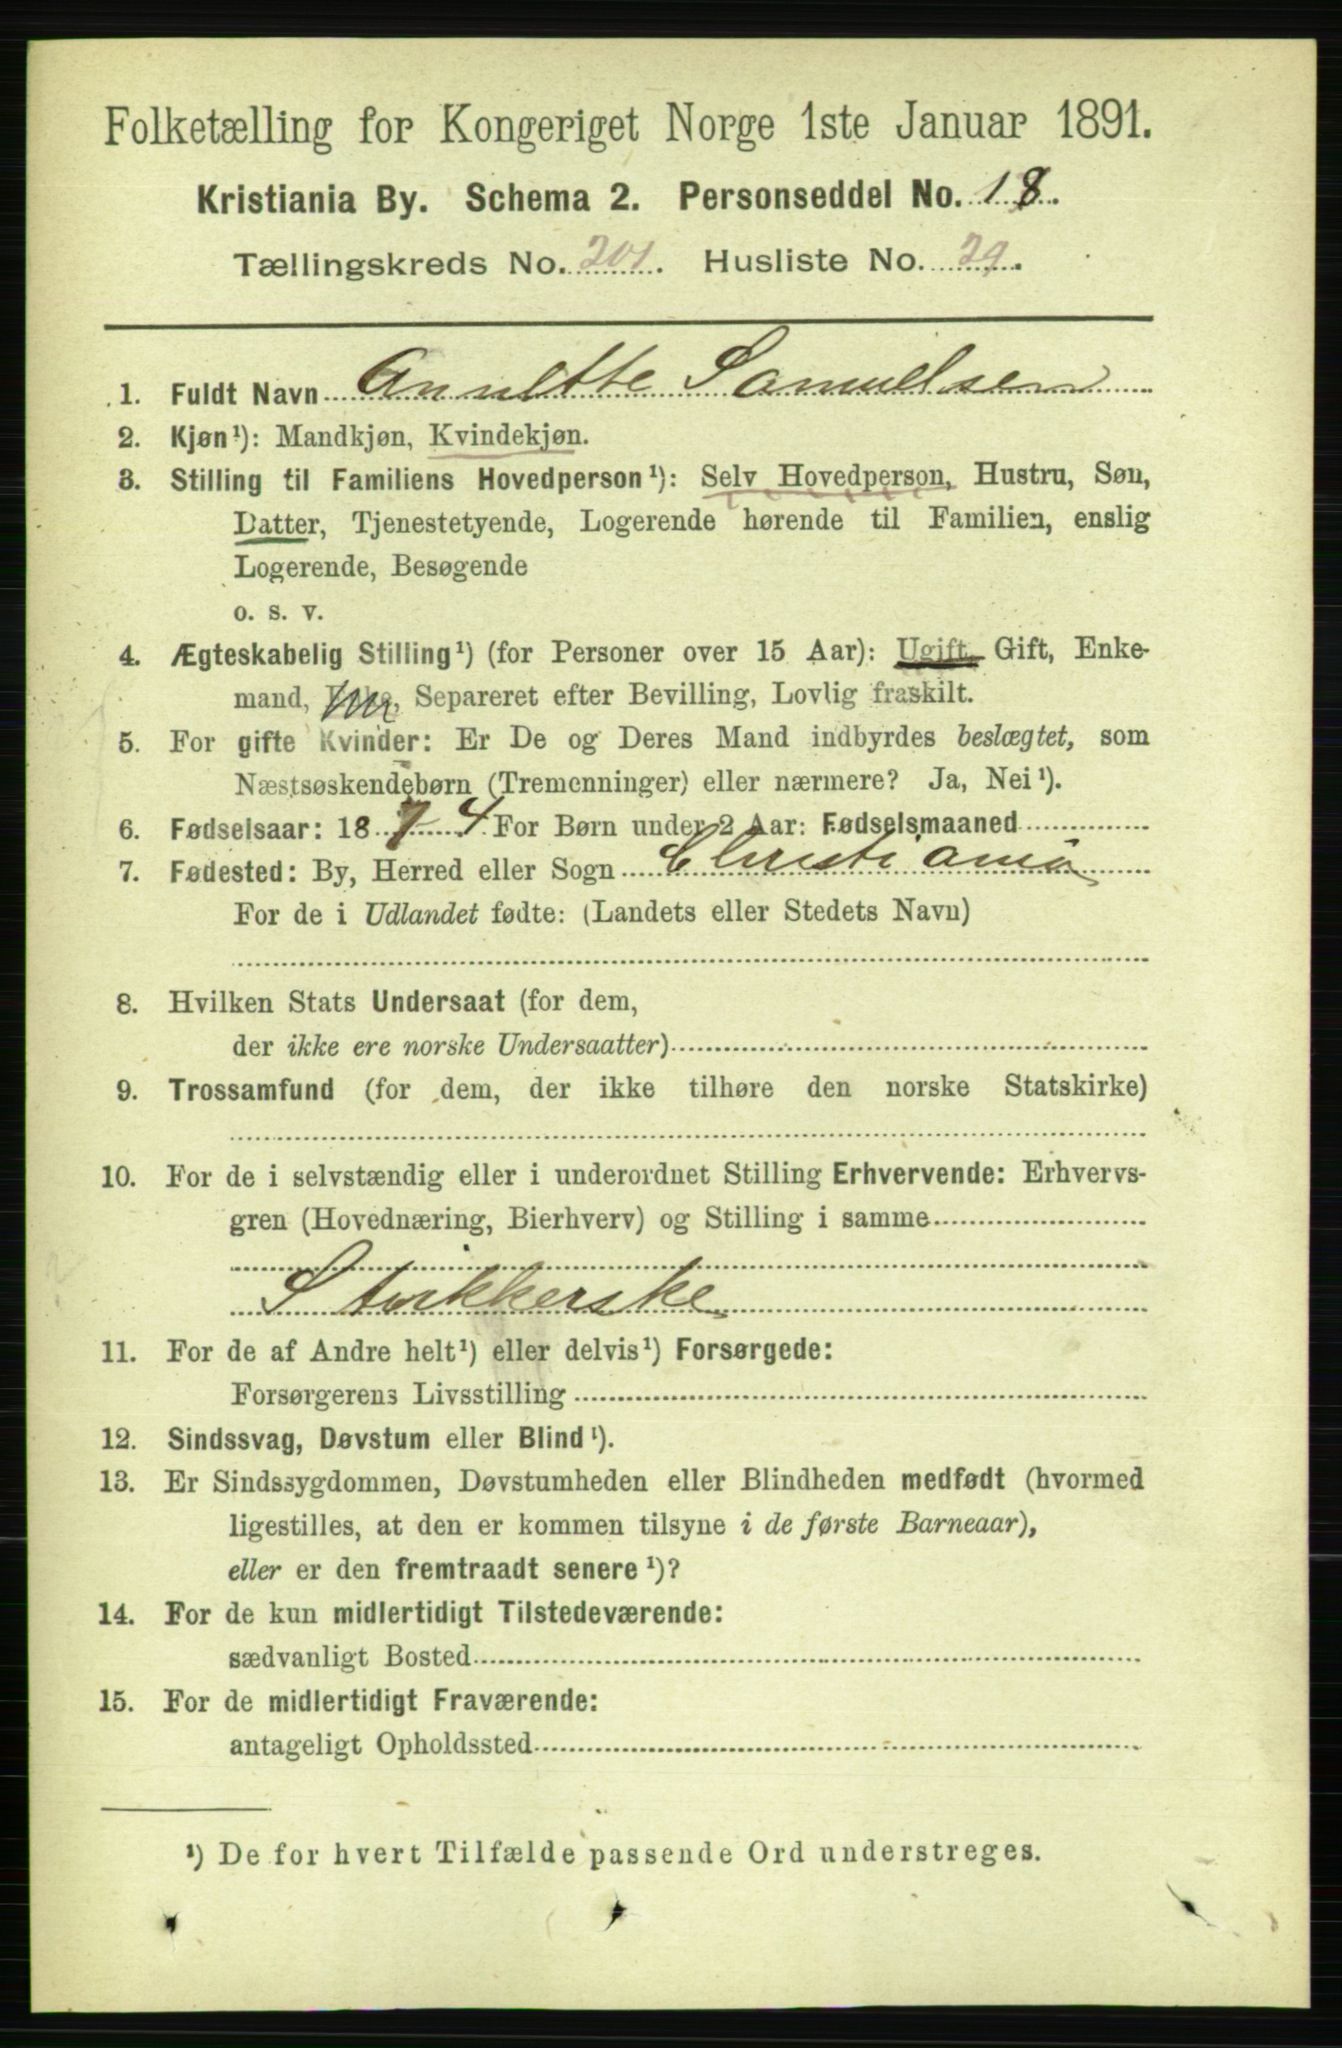 Folketælling for Kongeriget Norge 1ste Januar 1891.
Kristiania By. Schema 2. Personseddel No. 18.
Tællingskreds No. 201. Husliste No. 29.
1. Fuldt Navn Annette Samuelsen
2. Kjøn¹): Mandkjøn, Kvindekjøn.
3. Stilling til Familiens Hovedperson¹): Selv Hovedperson, Hustru, Søn,
Datter, Tjenestetyende, Logerende hørende til Familien, enslig
Logerende, Besøgende
o. s. v.
4. Ægteskabelig Stilling¹) (for Personer over 15 Aar): Ugift, Gift, Enke-
mand, Enke, Separeret efter Bevilling, Lovlig fraskilt.
5. For gifte Kvinder: Er De og Deres Mand indbyrdes beslægtet, som
Næstsøskendebørn (Tremenninger) eller nærmere? Ja, Nei¹).
6. Fødselsaar: 1874 For Børn under 2 Aar: Fødselsmaaned
7. Fødested: By, Herred eller Sogn Christiania
For de i Udlandet fødte: (Landets eller Stedets Navn)
8. Hvilken Stats Undersaat (for dem,
der ikke ere norske Undersaatter)
9. Trossamfund (for dem, der ikke tilhøre den norske Statskirke)
10. For de i selvstændig eller i underordnet Stilling Erhvervende: Erhvervs-
gren (Hovednæring, Bierhverv) og Stilling i samme
Strikkerske
11. For de af Andre helt¹) eller delvis¹) Forsørgede:
Forsørgerens Livsstilling
12. Sindssvag, Døvstum eller Blind¹).
13. Er Sindssygdommen, Døvstumheden eller Blindheden medfødt (hvormed
ligestilles, at den er kommen tilsyne i de første Barneaar),
eller er den fremtraadt senere¹)?
14. For de kun midlertidigt Tilstedeværende:
sædvanligt Bosted
15. For de midlertidigt Fraværende:
antageligt Opholdssted
¹) De for hvert Tilfælde passende Ord understreges.